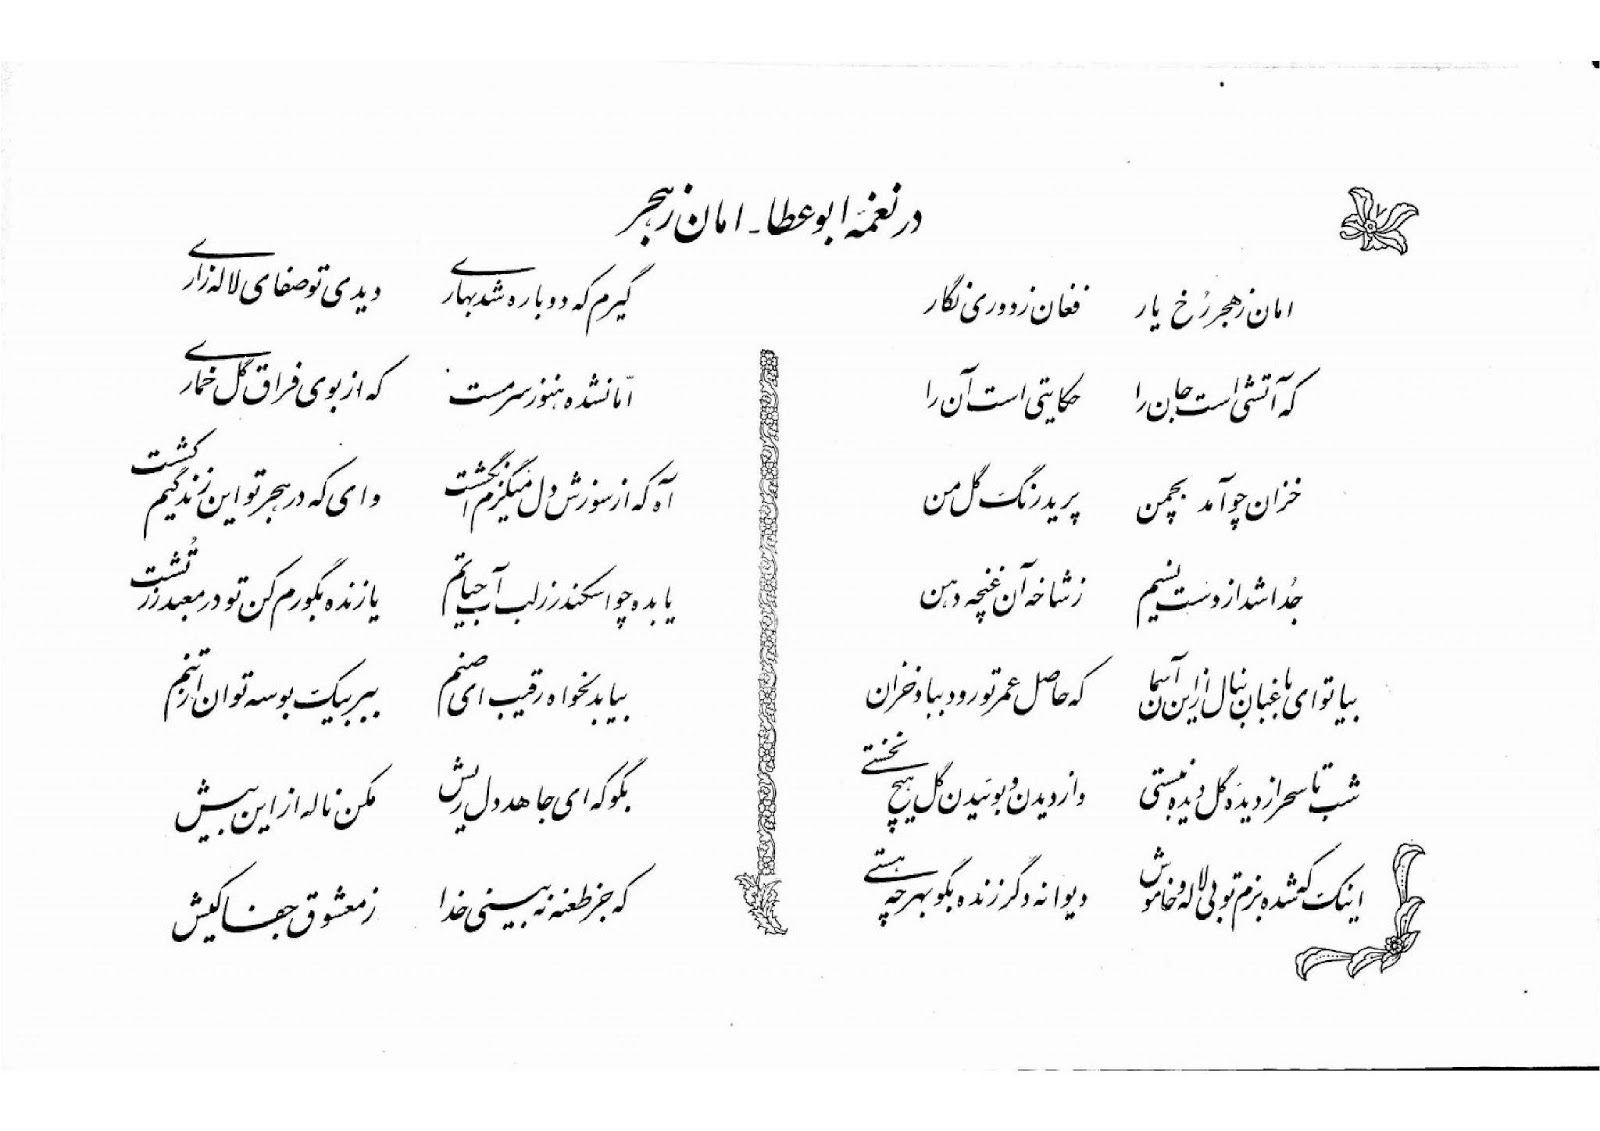 در نغمهٔ ابوعطا - امان ز هجر
امان ز هجر رُخ یار فغان ز دوری نگار
که آتشی است جان را حکایتی است آن را
خزان چو آمد بچمن پرید رنگ گل من
جُدا شد از دست نسیم ز شاخه آن غنچه دهن
بیا تو ای باغبان بنال از این آسمان که حاصل عمر تو رود بباد خزان
شب تا سحر از دیده گل دیده نبستی و از دیدن و بوئیدن گل هیچ نخستی
اینک که شده بزم تو بی لاله و خاموش دیوانه دگر زنده بگو بهر چه هستی
گیرم که دوباره شد بهاری دیدی تو صفای لاله زاری
امّا نشده هنوز سرمست که از بوی فراق گل خماری
آه که از سوزش دل میگزم انگشت وای که در هجر تو این زندگیم کشت
یا بده چو اسکندر ز لب آب حیاتم یا زنده بگورم کن تو در معبد زرتُشت
بیا بدلخواه رقیب ای صنم ببر بیک بوسه توان از تنم
بگو که ای جاهد دل ریش مکن ناله از این بیش
که جز طعنه نه بینی خدا ز معشوق جفا کیش